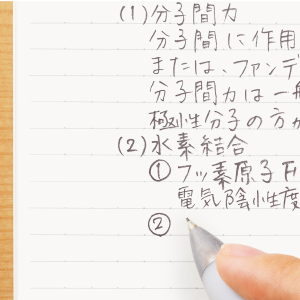 (1)分子間力
分子間に作用
または、ファンデ
分子間力は一般
極性分子の方が
(2)水素結合
①フッ素原子F
電気陰性度
②